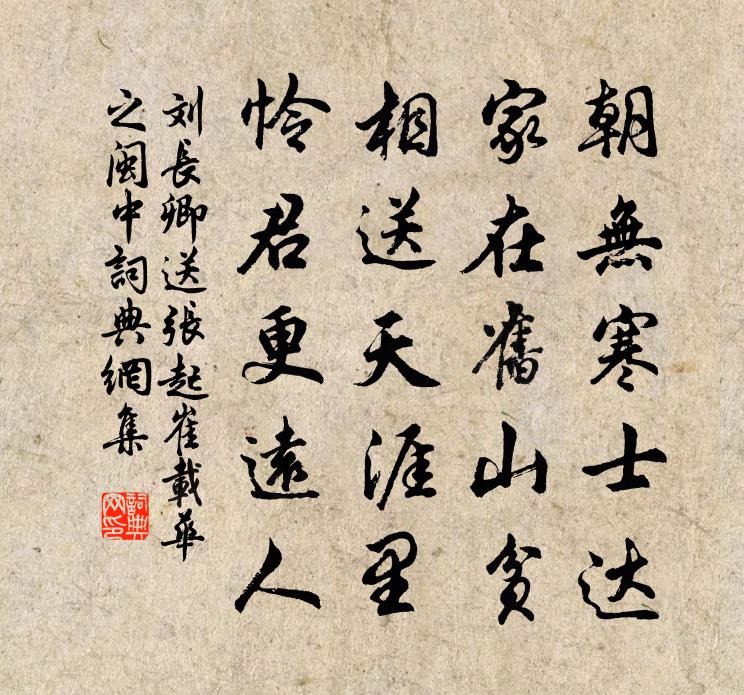 朝無寒士达
家在舊山貧
相送天涯里
憐君更遠人
刘長卿送張起崔載華
之閩中詞典網集
詞典
网印